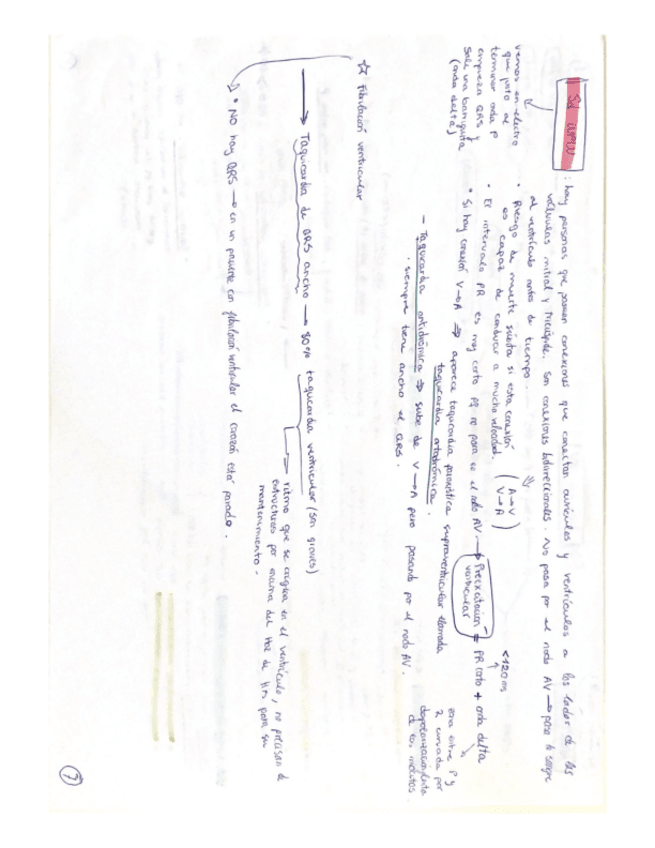 Sd WPW : hay personas que poseen conexiones que conectan aurículas y ventrículos a los lados de las
válvulas mitral y tricúspide. Son conexiones bidireccionales. No pasa por el nodo AV → pasa la sangre
al ventrículo antes de tiempo.
vemos en electro
que justo al
terminar onda p
empieza QRS y
sale una barriguita
(onda delta)
• Riesgo de muerte súbita si esta conexión
es capaz de conducir a mucha velocidad. (A→V
V→A)
• El intervalo PR es muy corto pq no pasa en el nodo AV → Preexcitación
ventricular = PR corto + onda delta
<120 ms
onda entre P y
2 causada por
despolarización lenta
de los miocitos
• Si hay conexión V→A ⇒ aparece taquicardia paroxística supraventricular llamada
taquicardia ortodrómica.
- Taquicardia antidrómica ⇒ sube de V→A pero pasando por el nodo AV.
· siempre tiene ancho el QRS.
☆ Fibrilación ventricular
→ Taquicardia de QRS ancho → 80% taquicardia ventricular (son graves)
ritmo que se origina en el ventrículo, no precisan de
estructuras por encima del Haz de His para su
mantenimiento.
• NO hay QRS → en un paciente con fibrilación ventricular el corazón está parado.
7